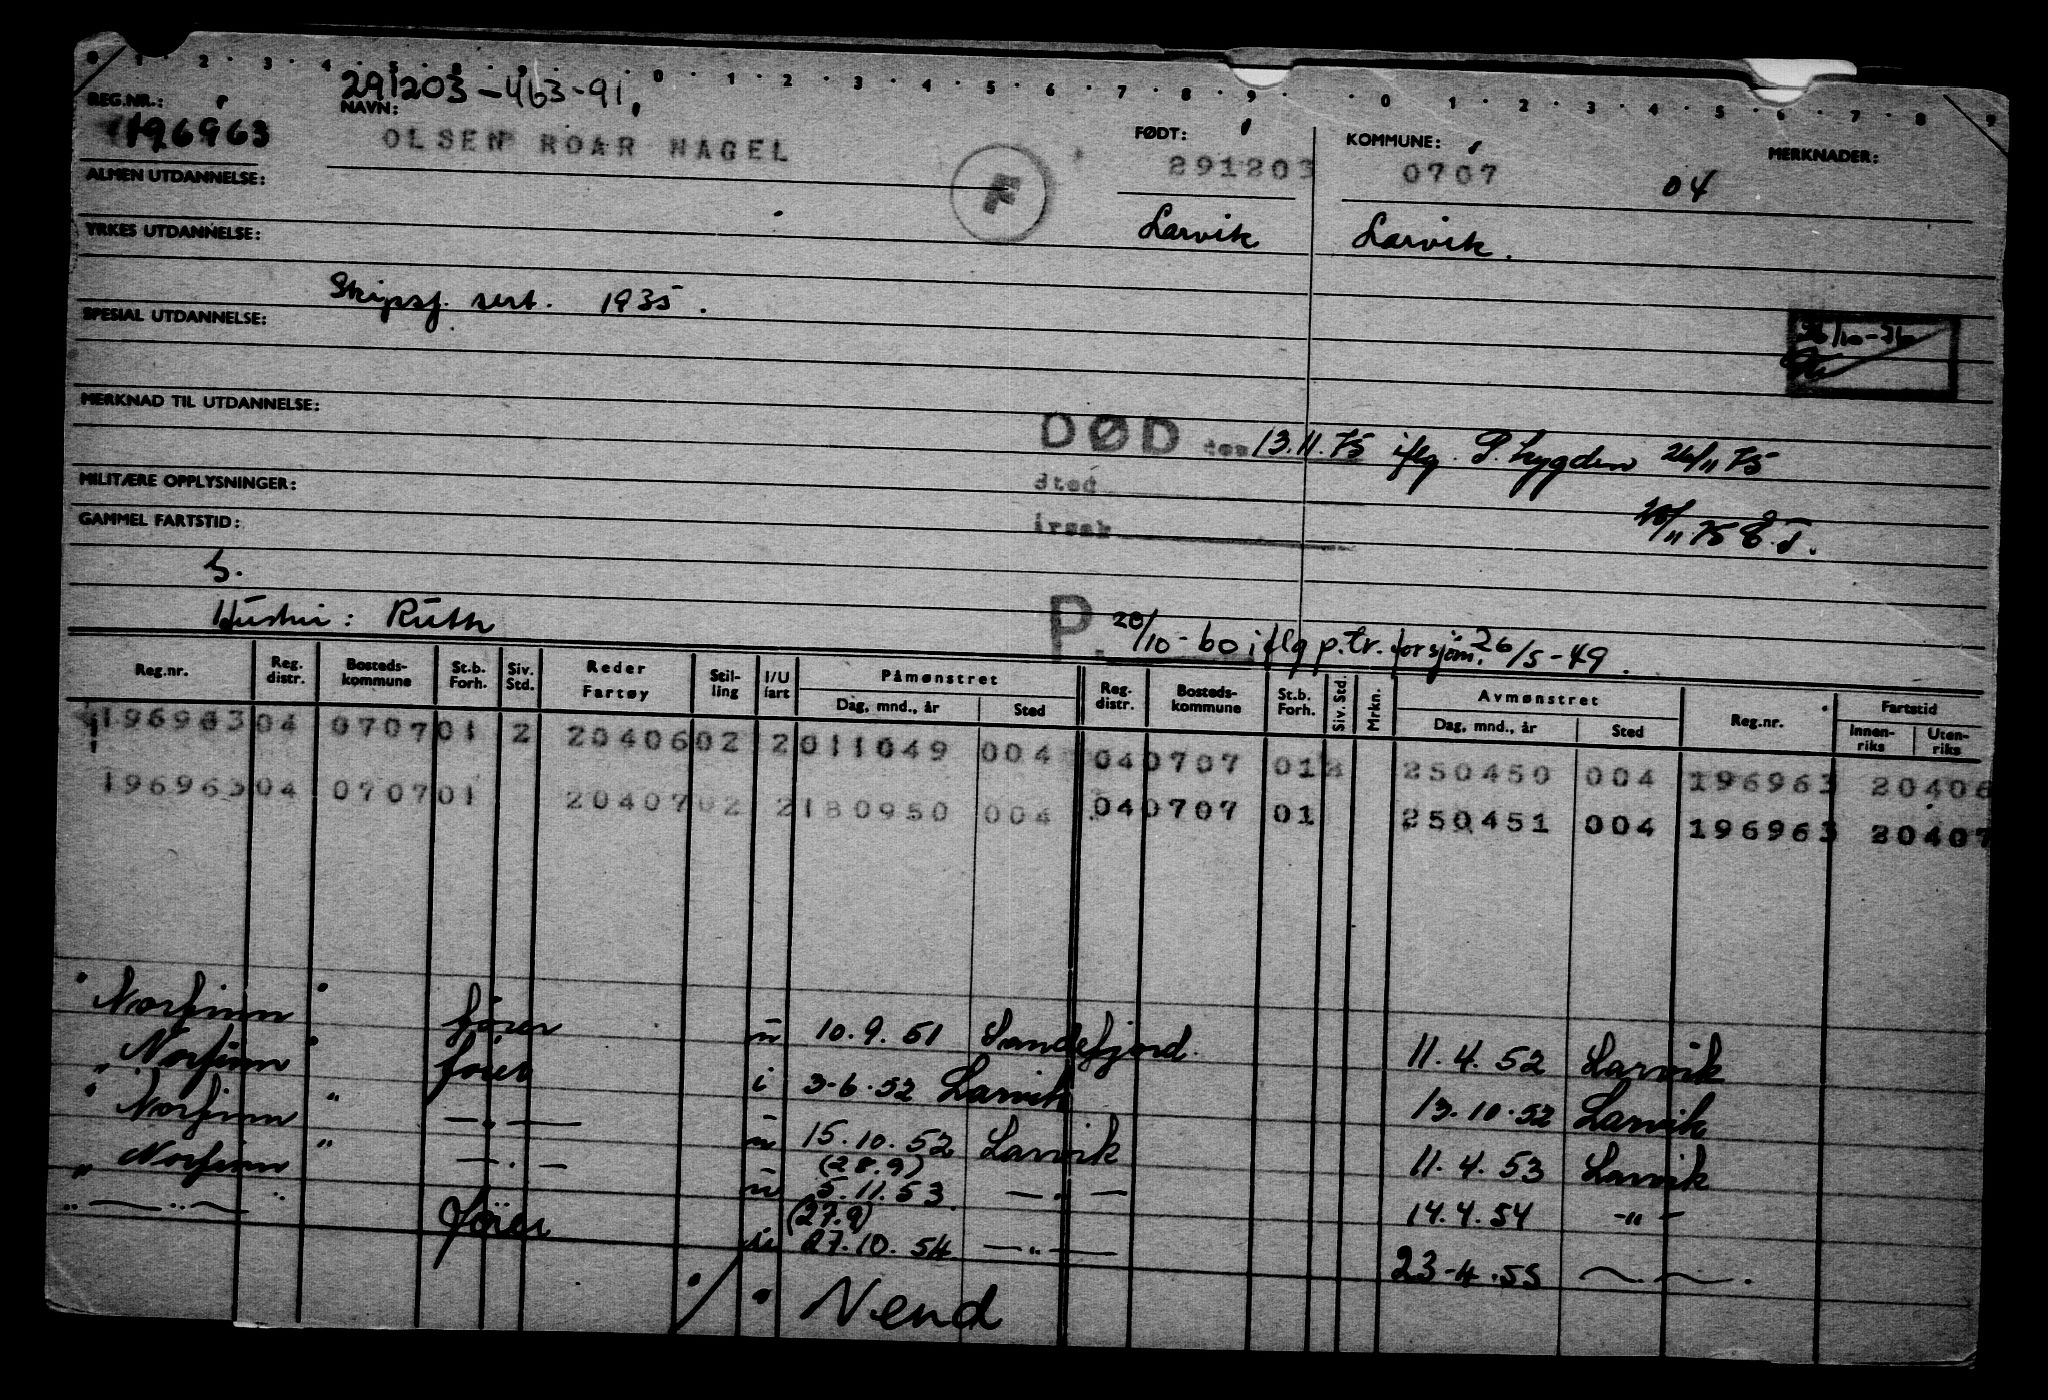 0 1 2 3 4 5 8 9 0 1 2 3 4 5 6 7 8 9 0 1 2 3 4 5 6 7 8 9
291203-463-91
REG.NR.: NAVN: FØDT: KOMMUNE: MERKNADER:
196963 OLSEN ROAR NAGEL F 291203 0707 04
ALMEN UTDANNELSE:
Larvik Larvik.
YRKES UTDANNELSE:
Skipsf. sert. 1935.
SPESIAL UTDANNELSE:
26/10-76
MERKNAD TIL UTDANNELSE:
DØD den 13.11.75 iflg. P. Lygden 26/11 75
sted
MILITÆRE OPPLYSNINGER:
årsak
GAMMEL FARTSTID:
Hustru: Ruth
P. 20/10-60 iflg p.tr. for sjøm. 26/5-49.
Reg.nr. Reg. distr. Bosteds-kommune St.b. Forh. Siv. Std. Reder Fartøy Stil-ling I/U fart Påmønstret Dag, mnd., år Sted Reg. distr. Bosteds-kommune St.b. Forh. Siv. Std. Mrkn. Avmønstret Dag, mnd., år Sted Reg.nr. Fartstid Innen-riks Uten-riks
196963 04 0707 01 2 20406 02 2 011049 004 04 0707 01 2 250450 004 196963 20406
196963 04 0707 01 20407 02 2 180950 004 04 0707 01 250451 004 196963 20407
"Norfinn" fører u 10.9.51 Sandefjord 11.4.52 Larvik
"Norfinn" fører i 3-6.52 Larvik 13.10.52 Larvik
"Norfinn" —"— u 15.10.52 Larvik 11.4.53 Larvik
(28.9)
"Norfinn" —"— u 5.11.53 —"— 14.4.54 —"—
(27.9)
"—"—" fører u 27.10.54 —"— 23-4.55 —"—
Vend